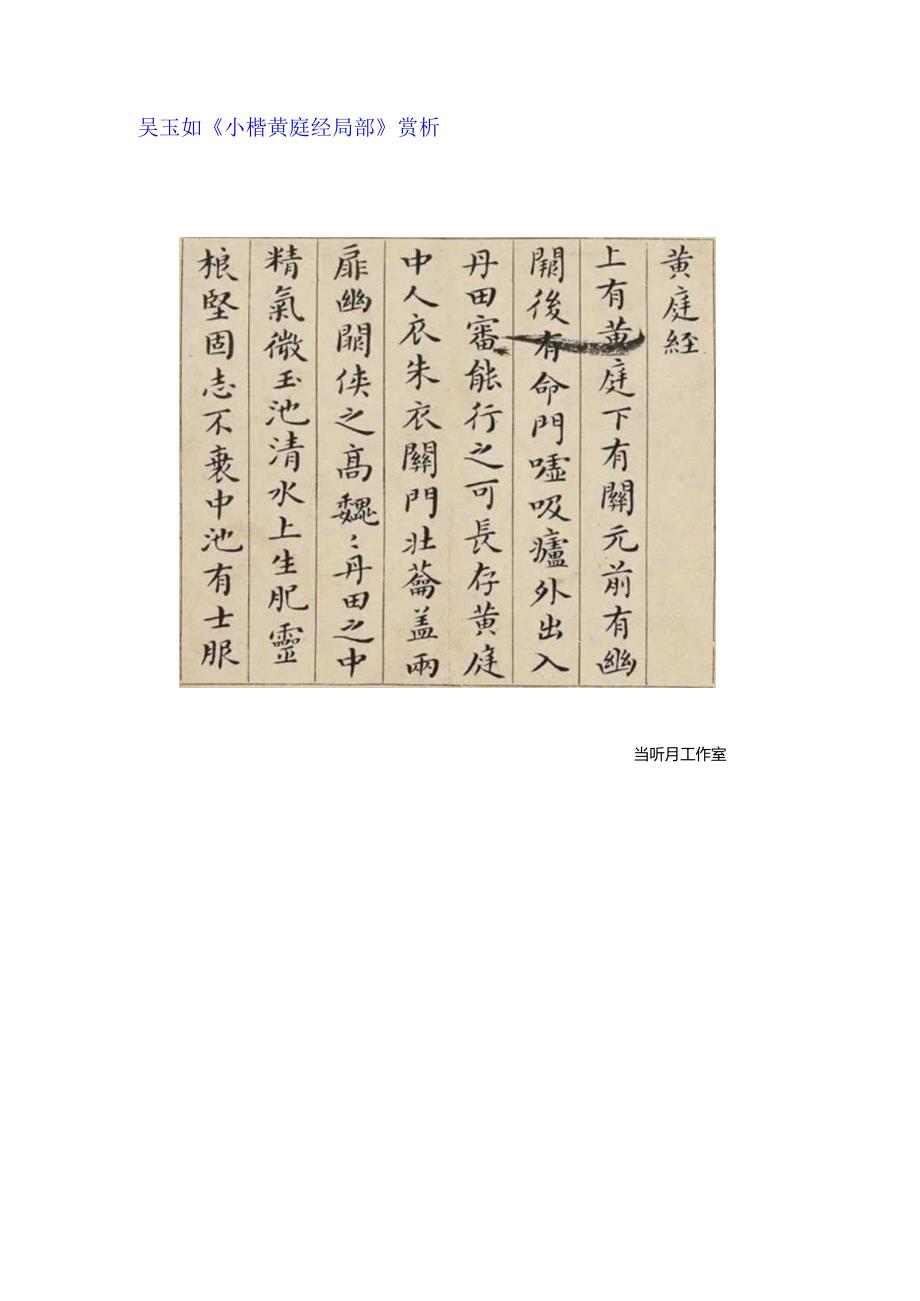 吴玉如《小楷黄庭经局部》赏析
黄庭経
上有黄庭下有關元前有幽
闕後有命門噓吸廬外出入
丹田審能行之可長存黄庭
中人衣朱衣關門壯蘥盖兩
扉幽闕俠之髙巍〻丹田之中
精氣微玉池清水上生肥靈
根堅固志不衰中池有士服
当听月工作室